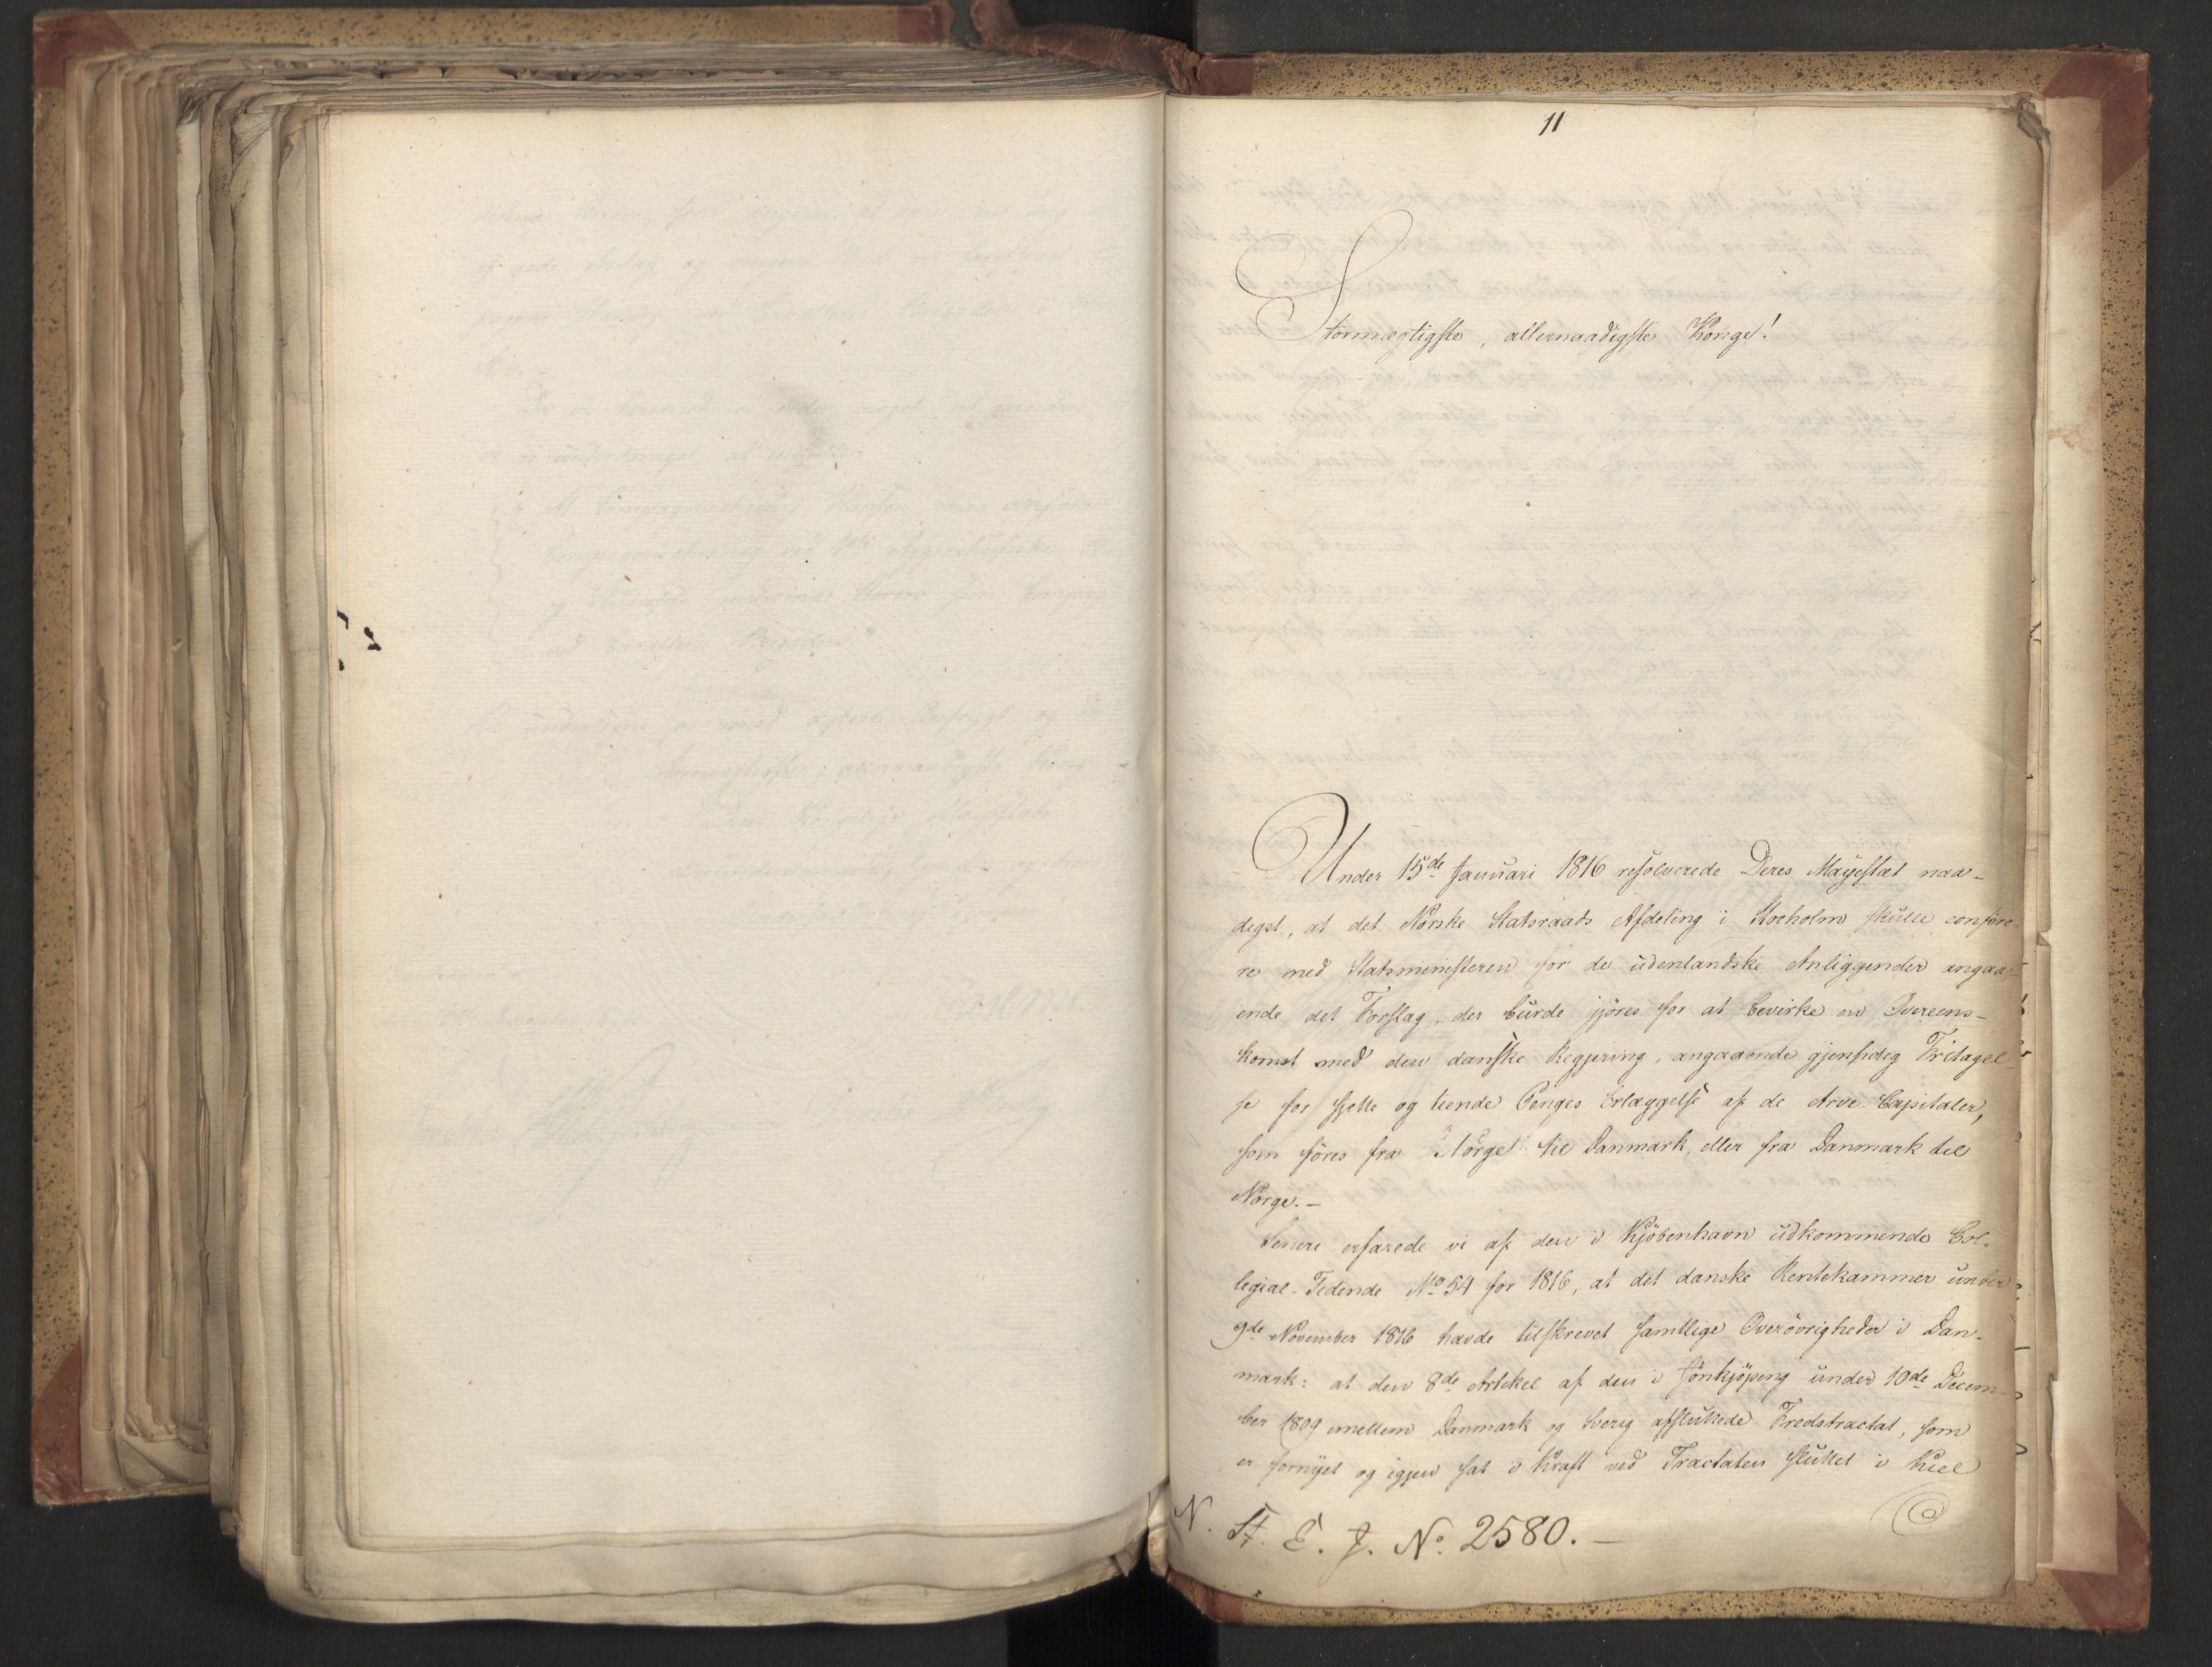 11
Stormægtigste, allernaadigste Konge!
Under 15de Januari 1816 resolverede Deres Mayestæt naa-
digst, at det Norske Statsraads Afdeling i Stocholm skulle confere-
re med Statsministeren for de udenlandske Anliggender angaa-
ende det Forslag, der burde gjöres for at bevirke en Overeens-
komst med den danske Regjering, angaaende gjensidig Fritagel-
se for sjette og tiende Penges Erlæggelse af de Arve Capitaler,
som föres fra Norge til Danmark, eller fra Danmark til
Norge.-
Senere erfarede vi af den i Kjöbenhavn udkommende Col-
legial-Tidende No 54 for 1816, at det danske Rentekammer under
9de November 1816 havde tilskrevet samtlige Overövrigheder i Dan-
mark: at den 8de Artikel af den i Jönkjöping under 10de Decem-
ber 1809 emellem Danmark og Sverig afsluttede Fredstractat, som
er fornyet og igjen sat i Kraft ved Tractaten sluttet i Kiel
N. St. E. J. No. 2580.-